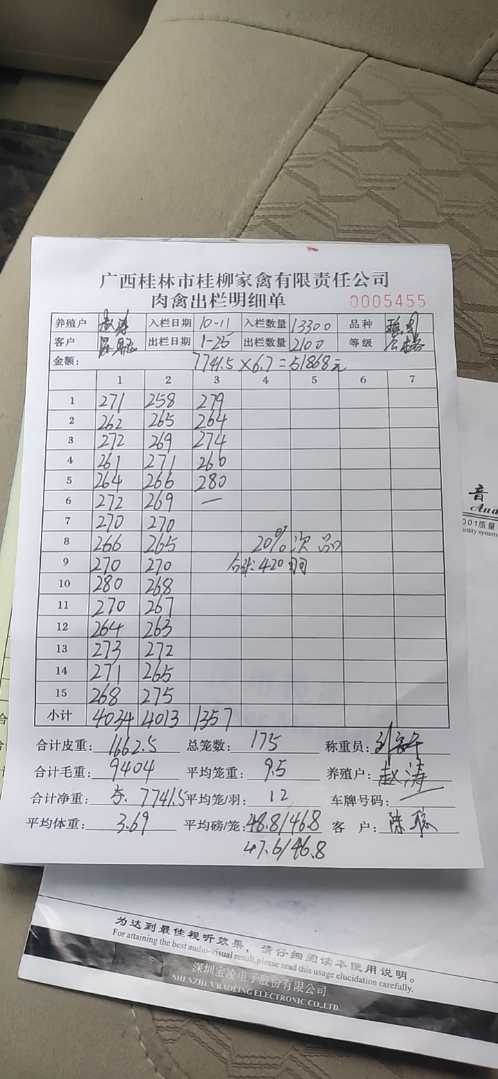 广西桂林市桂柳家禽有限责任公司
肉禽出栏明细单 0005455
养殖户 赵涛 入栏日期 10-11 入栏数量 13300 品种
客户 出栏日期 1-25 出栏数量 2100 等级
金额: 7741.5×6.7=51868元
1 2 3 4 5 6 7
1 271 258 279
2 262 265 264
3 272 269 274
4 261 271 260
5 264 266 280
6 272 269 —
7 270 270
8 266 265 20%次品
9 270 270 合计:420羽
10 280 268
11 270 267
12 264 263
13 273 272
14 271 265
15 268 275
小计 4034 4013 1357
合计皮重: 1662.5 总笼数: 175 称重员:
合计毛重: 9404 平均笼重: 9.5 养殖户: 赵涛
合计净重: 7741.5 平均笼/羽: 12 车牌号码: —
平均体重: 3.69 平均磅/笼: 48.8/46.8 客 户: 陈
47.6/46.8
音
Aud
001质量
为达到最佳视听效果，请仔细阅读本使用说明。
For attaining the best audio-visual result,please read this usage elucidation carefully.
深圳宝凌电子股份有限公司
SHENZHEN BAOLING ELECTRONIC CO.,LTD.